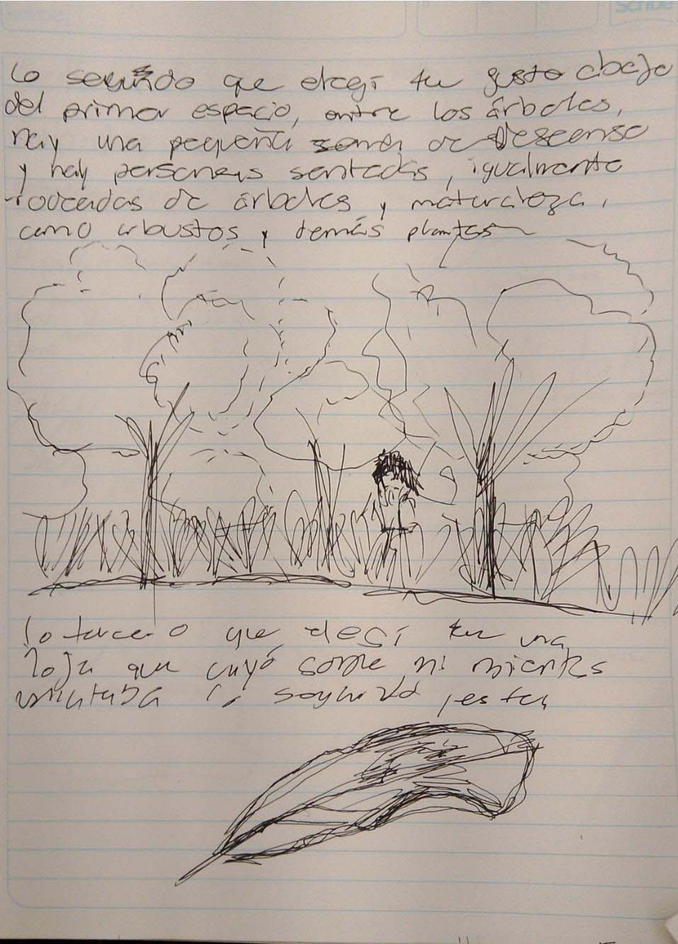 Scribe
lo segundo que elegí fue justo abajo
del primer espacio, entre los árboles,
hay una pequeña zona de descenso
y hay personas sentadas, igualmente
rodeadas de árboles y naturaleza,
como arbustos y demás plantas
lo tercero que elegí fue una
hoja que cayó sobre mi mientras